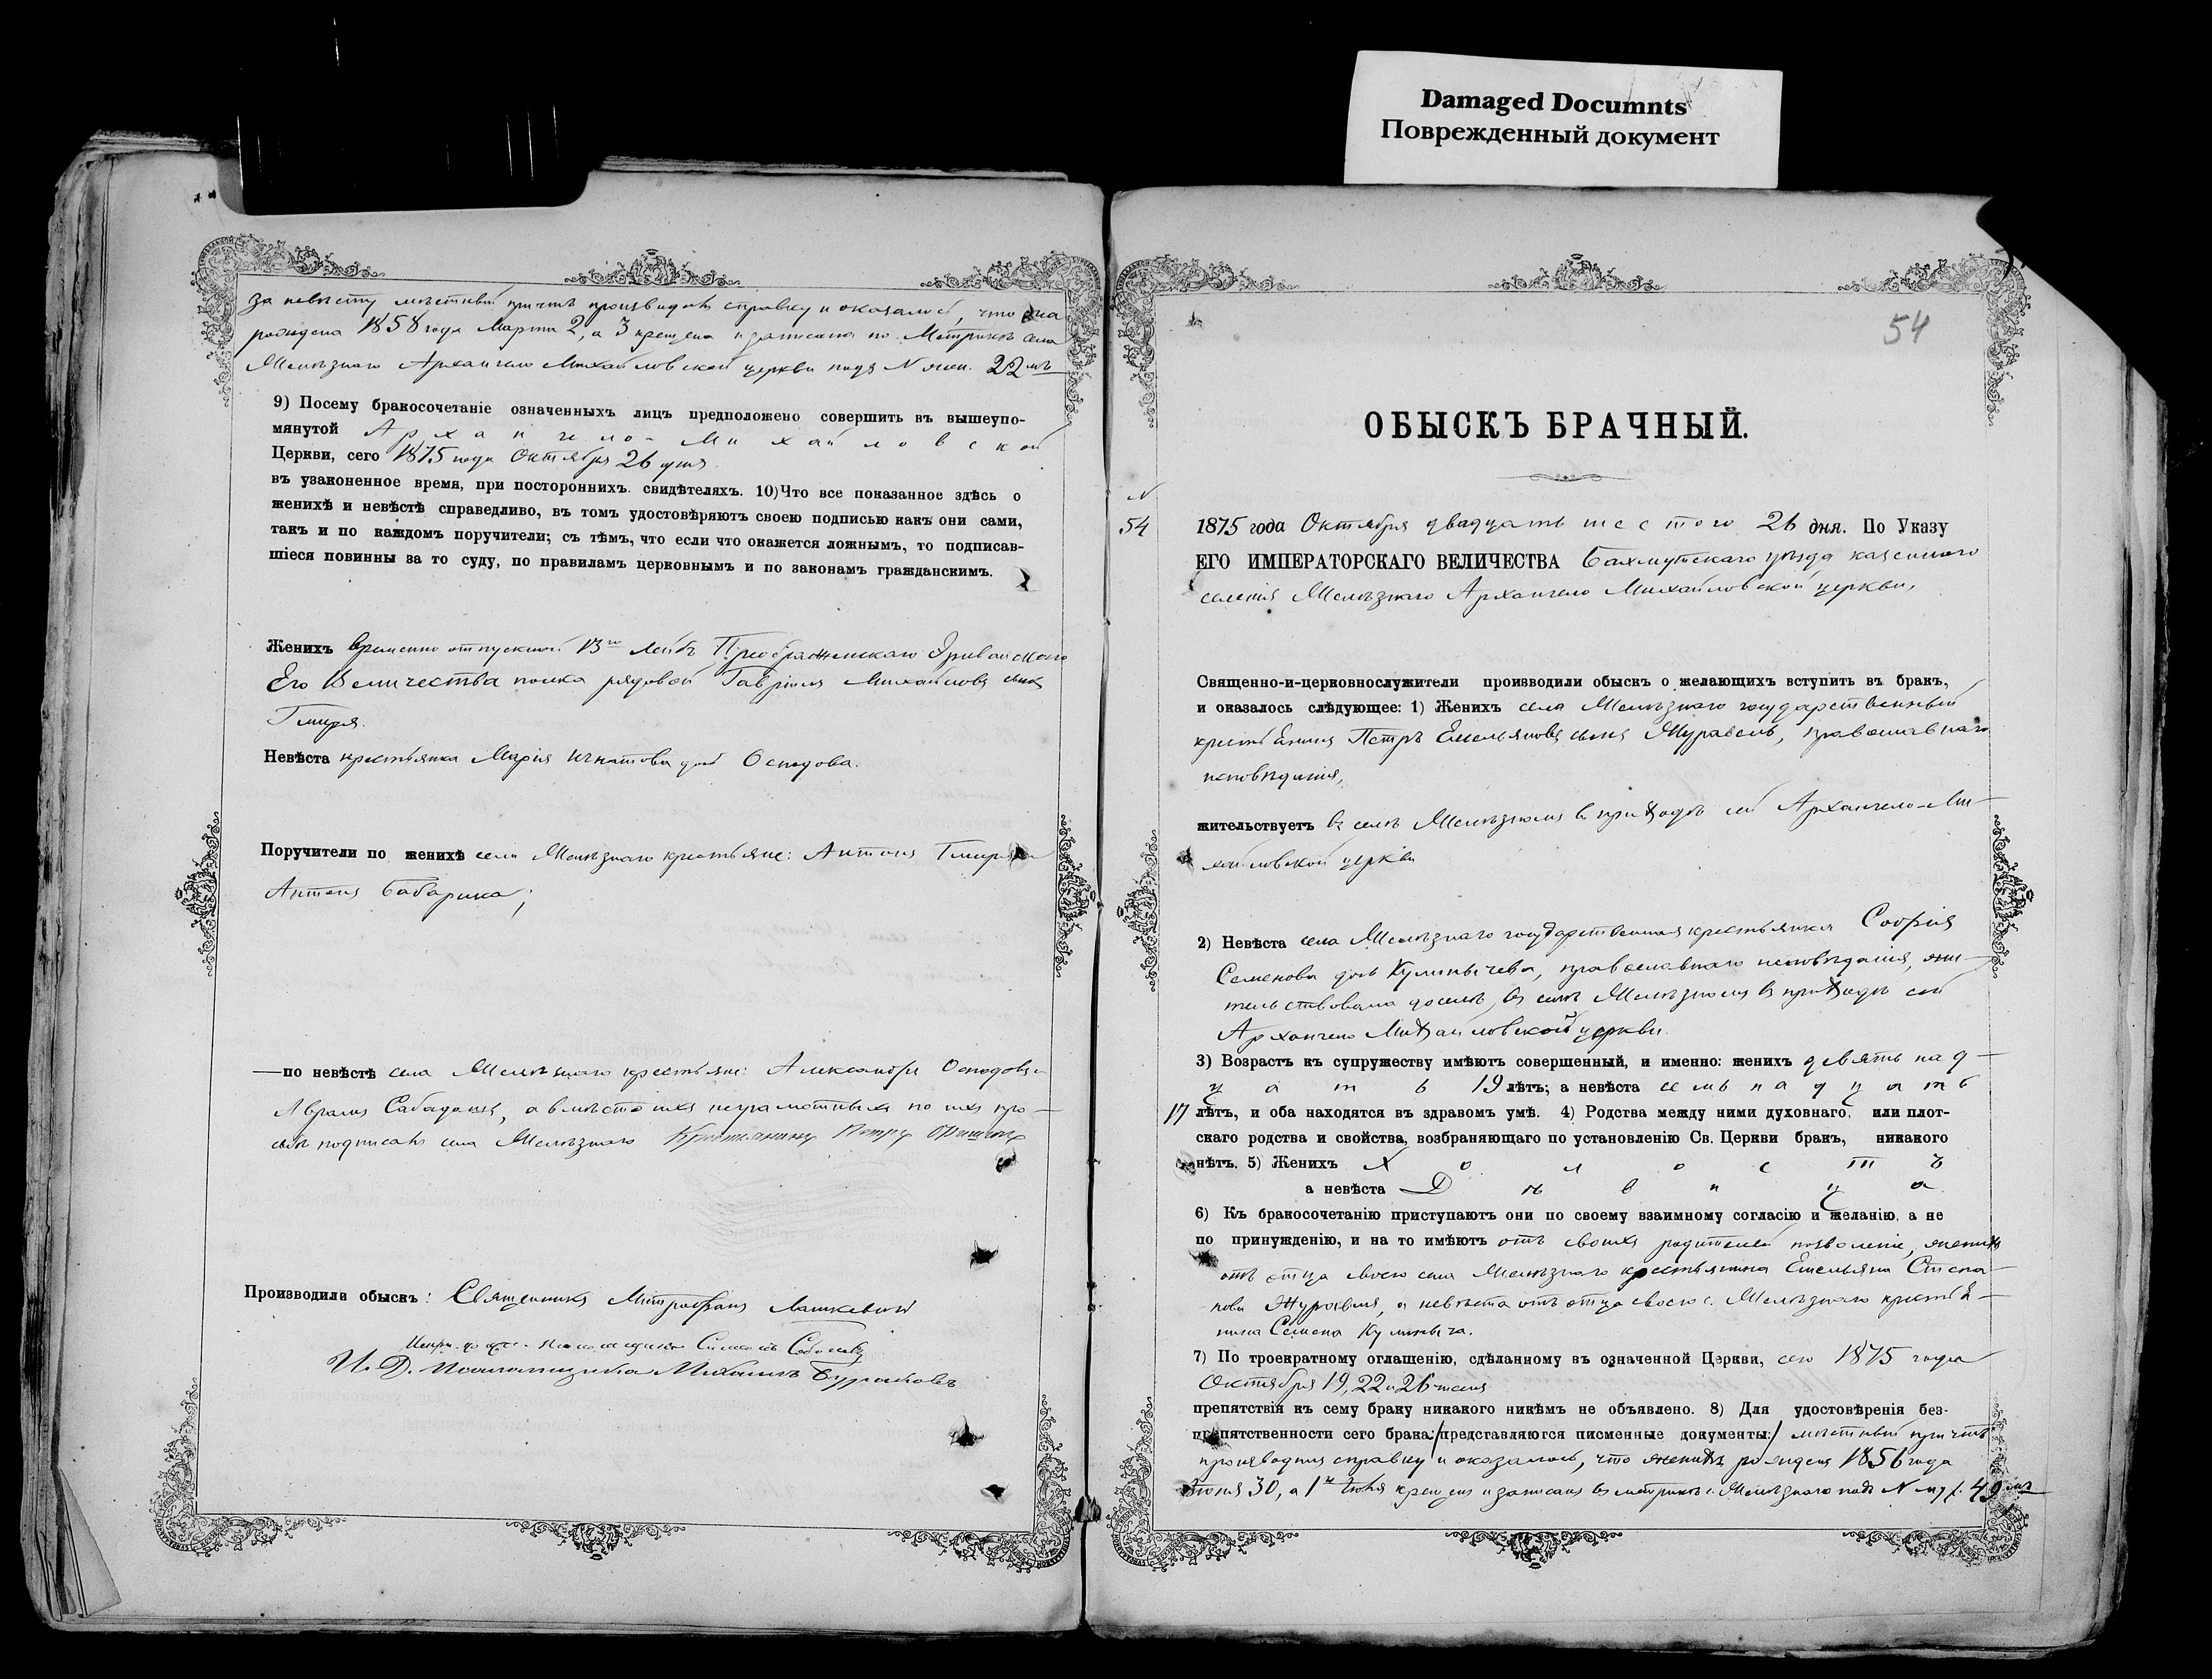 Damaged Documnts
Поврежденный документ
за невѣсту мѣстный причтъ производилъ справку и оказалось, что она
рождена 1858 года Марта 2, а 3 крещена и записана по Метрикѣ села
Желѣзнаго Архангело Михайловской церкви подъ N жен. 22мъ
9) Посему бракосочетаніе означенныхъ лицъ предположено совершить въ вышеупо-
мянутой Архангело-Михайловской
Церкви, сего 1875 года Октября 26 дня.
въ узаконенное время, при постороннихъ свидѣтеляхъ. 10) Что все показанное здѣсь о
женихѣ и невѣстѣ справедливо, въ томъ удостовѣряютъ своею подписью какъ они сами,
такъ и по каждомъ поручители; съ тѣмъ, что если что окажется ложнымъ, то подписав-
шіеся повинны за то суду, по правиламъ церковнымъ и по законамъ гражданскимъ.
Женихъ временно отпускной 13го Лейбъ Эриванскаго
Его Величества полка рядовой Гавріилъ Михайловъ сынъ
Гмиря.
Невѣста крестьянка Марія Игнатова дочь Осподова.
Поручители по женихѣ села Желѣзнаго крестьяне: Антонъ Гмиря и
Антонъ Бабарика;
—по невѣстѣ села Желѣзнаго крестьяне: Александръ Осподовъ и
а вмѣсто ихъ неграмотныхъ по ихъ про-
сьбѣ подписалъ села Желѣзнаго Крестьянинъ Петръ
Производили обыскъ: Священникъ Митрофанъ
И. Д. Псаломщика Михаилъ Бураковъ
54
ОБЫСКЪ БРАЧНЫЙ.
N
54
1875 года Октября двадцать шестого 26 дня. По Указу
ЕГО ИМПЕРАТОРСКАГО ВЕЛИЧЕСТВА Бахмутскаго уѣзда казеннаго
селенія Желѣзнаго Архангело Михайловской церкви,
Священно-и-церковнослужители производили обыскъ о желающихъ вступить въ бракъ,
и оказалось слѣдующее: 1) Женихъ села Желѣзнаго государственный
крестьянинъ Петръ Емельяновъ сынъ Журавель, православнаго
исповѣданія,
жительствуетъ въ селѣ Желѣзномъ въ приходѣ сей Архангело-Ми-
хайловской церкви
2) Невѣста села Желѣзнаго государственная крестьянка Софія
Семенова дочь Кулинычева, православнаго исповѣданія, жи-
тельствовала доселѣ въ селѣ Желѣзномъ въ приходѣ сей
Архангело Михайловской церкви.
3) Возрастъ къ супружеству имѣютъ совершенный, и именно: женихъ девятнад-
цать 19 лѣтъ; а невѣста семьнадцать
17 лѣтъ, и оба находятся въ здравомъ умѣ. 4) Родства между ними духовнаго, или плот-
скаго родства и свойства, возбраняющаго по установленію Св. Церкви бракъ, никакого
нѣтъ. 5) Женихъ Холостъ
а невѣста Дѣвица
6) Къ бракосочетанію приступаютъ они по своему взаимному согласію и желанію, а не
по принужденію, и на то имѣютъ отъ своихъ родителей позволеніе, женихъ
отъ отца своего села Желѣзнаго крестьянина Емельяна Степа-
нова Журавля, а невѣста отъ отца своего с. Желѣзнаго крестья-
нина Семена Кулиныча.
7) По троекратному оглашенію, сдѣланному въ означенной Церкви, сего 1875 года
Октября 19, 22 и 26 числъ
препятствія къ сему браку никакого никѣмъ не объявлено. 8) Для удостовѣренія без-
препятственности сего брака:/представляются писменные документы:/ мѣстный причтъ
производилъ справку и оказалось, что женихъ рожденъ 1856 года
Іюня 30, а 1го Іюля крещенъ и записанъ въ метрикѣ с. Желѣзнаго подъ N муж. 49мъ